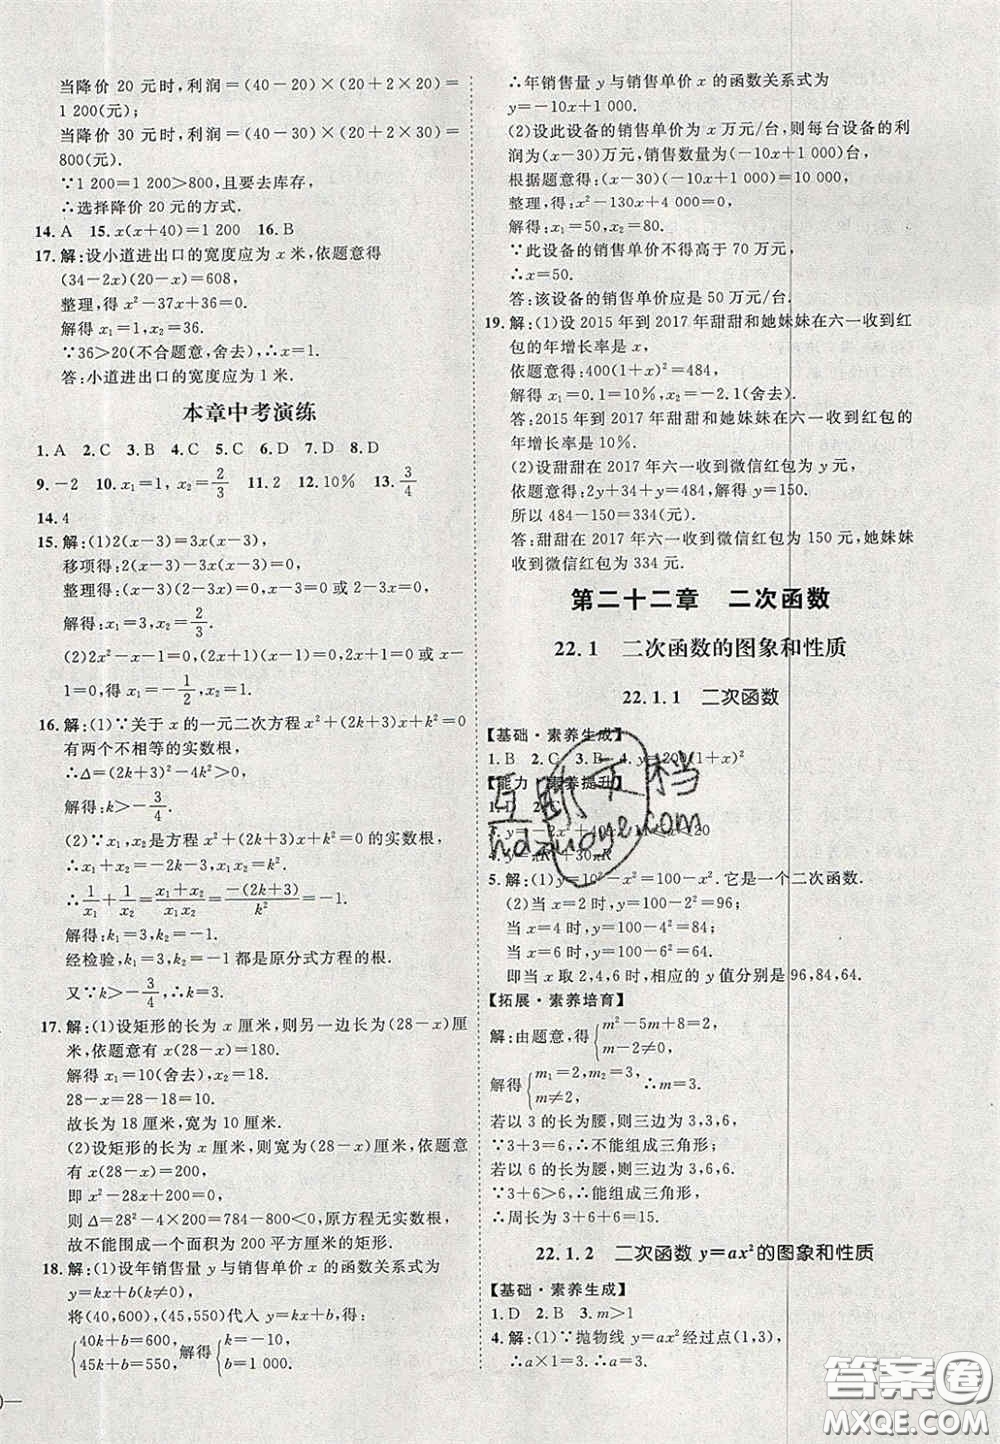 当降价 20 元时,利润=(40-20)×(20+2×20)=
1 200(元);
当降价 30 元时,利润=(40-30)×(20+2×30)=
800(元).
∵1 200=1 200>800,且要去库存,
∴选择降价 20 元的方式.
14. A 15. x(x+40)=1 200 16. B
17. 解:设小道进出口的宽度应为 x 米,依题意得
(34-2x)(20-x)=608,
整理,得 x²-37x+36=0.
解得 x₁=1,x₂=36.
∵36>20(不合题意,舍去),∴x=1.
答:小道进出口的宽度应为 1 米.
本章中考演练
1. A 2. C 3. B 4. C 5. C 6. D 7. D 8. D
9. -2 10. x₁=1, x₂=2/3 11. 2 12. 10% 13. 3/4
14. 4
15. 解:(1)2(x-3)=3x(x-3),
移项得:2(x-3)-3x(x-3)=0,
整理得:(x-3)(2-3x)=0,x-3=0 或 2-3x=0,
解得:x₁=3,x₂=2/3.
(2)2x²-x-1=0,(2x+1)(x-1)=0,2x+1=0 或
x-1=0,解得 x₁=-1/2,x₂=1.
16. 解:(1)∵关于 x 的一元二次方程 x²+(2k+3)x+k²=0
有两个不相等的实数根,
∴Δ=(2k+3)²-4k²>0,
解得:k>-3/4.
(2)∵x₁,x₂是方程 x²+(2k+3)x+k²=0 的实数根,
∴x₁+x₂=-2k-3,x₁x₂=k²,
∴1/x₁+1/x₂=(x₁+x₂)/(x₁x₂)=-(2k+3)/k²=-1,
解得:k₁=3,k₂=-1.
经检验,k₁=3,k₂=-1 都是原分式方程的根.
又∵k>-3/4,∴k=3.
17. 解:(1)设矩形的长为 x 厘米,则另一边长为(28-x)厘
米,依题意有 x(28-x)=180.
解得 x₁=10(舍去),x₂=18.
28-x=28-18=10.
故长为 18 厘米,宽为 10 厘米.
(2)设矩形的长为 x 厘米,则宽为(28-x)厘米,依题意
有 x(28-x)=200,
即 x²-28x+200=0,
则 Δ=28²-4×200=784-800<0,原方程无实数根,
故不能围成一个面积为 200 平方厘米的矩形.
18. 解:(1)设年销售量 y 与销售单价 x 的函数关系式为
y=kx+b(k≠0),
将(40,600),(45,550)代入 y=kx+b,得
{40k+b=600, 45k+b=550, 解得{k=-10, b=1 000.
∴年销售量 y 与销售单价 x 的函数关系式为
y=-10x+1 000.
(2)设此设备的销售单价为 x 万元/台,则每台设备的利
润为(x-30)万元,销售数量为(-10x+1 000)台,
根据题意得:(x-30)(-10x+1 000)=10 000,
整理,得:x²-130x+4 000=0,
解得:x₁=50,x₂=80.
∵此设备的销售单价不得高于 70 万元,
∴x=50.
答:该设备的销售单价应是 50 万元/台.
19. 解:(1)设 2015 年到 2017 年甜甜和她妹妹在六一收到红
包的年增长率是 x,
依题意得:400(1+x)²=484,
解得 x₁=0.1=10%,x₂=-2.1(舍去).
答:2015 年到 2017 年甜甜和她妹妹在六一收到红包的
年增长率是 10%.
(2)设甜甜在 2017 年六一收到微信红包为 y 元,
依题意得:2y+34+y=484,解得 y=150.
所以 484-150=334(元).
答:甜甜在 2017 年六一收到微信红包为 150 元,她妹妹
收到微信红包为 334 元.
第二十二章 二次函数
22.1 二次函数的图象和性质
22.1.1 二次函数
【基础·素养生成】
1. B 2. C 3. B 4. y=200(1+x)²
【能力·素养提升】
5. 解:(1)y=10²-x²=100-x². 它是一个二次函数.
(2)当 x=2 时,y=100-2²=96;
当 x=4 时,y=100-4²=84;
当 x=6 时,y=100-6²=64.
即当 x 取 2,4,6 时,相应的 y 值分别是 96,84,64.
【拓展·素养培育】
解:由题意,得{m²-5m+8=2, m-2≠0,
解得{m₁=2,m₂=3, m≠2. ∴m=3.
若以 3 的长为腰,则三边为 3,3,6.
∵3+3=6,∴不能组成三角形;
若以 6 的长为腰,则三边为 3,6,6.
∵3+6>6,∴能组成三角形,
∴周长为 3+6+6=15.
22.1.2 二次函数 y=ax²的图象和性质
【基础·素养生成】
1. D 2. B 3. m>1
4. 解:(1)∵抛物线 y=ax²经过点(1,3),
∴a×1=3,∴a=3.
互助文档
hdzuoye.com
答案圈
MXQE.COM